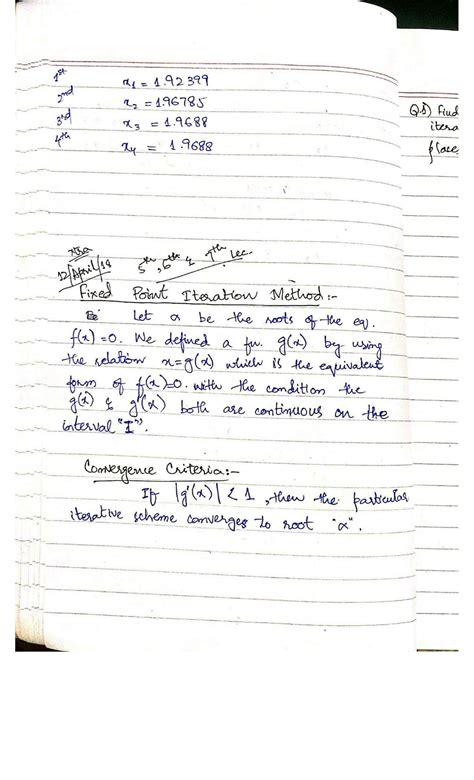 1st x₁ = 1.92399
2nd x₂ = 1.96785
3rd x₃ = 1.9688
4th x₄ = 1.9688
Q.8) Find
itera
place
12/April/18 5th, 6th & 7th Lec.
Fixed Point Iteration Method:-
Let α be the roots of the eq.
f(x)=0. We defined a fn. g(x) by using
the relation x=g(x) which is the equivalent
form of f(x)=0. with the condition the
g(x) & g'(x) both are continuous on the
interval "I".
Convergence Criteria:-
If |g'(x)| < 1, then the particular
iterative scheme converges to root "α".